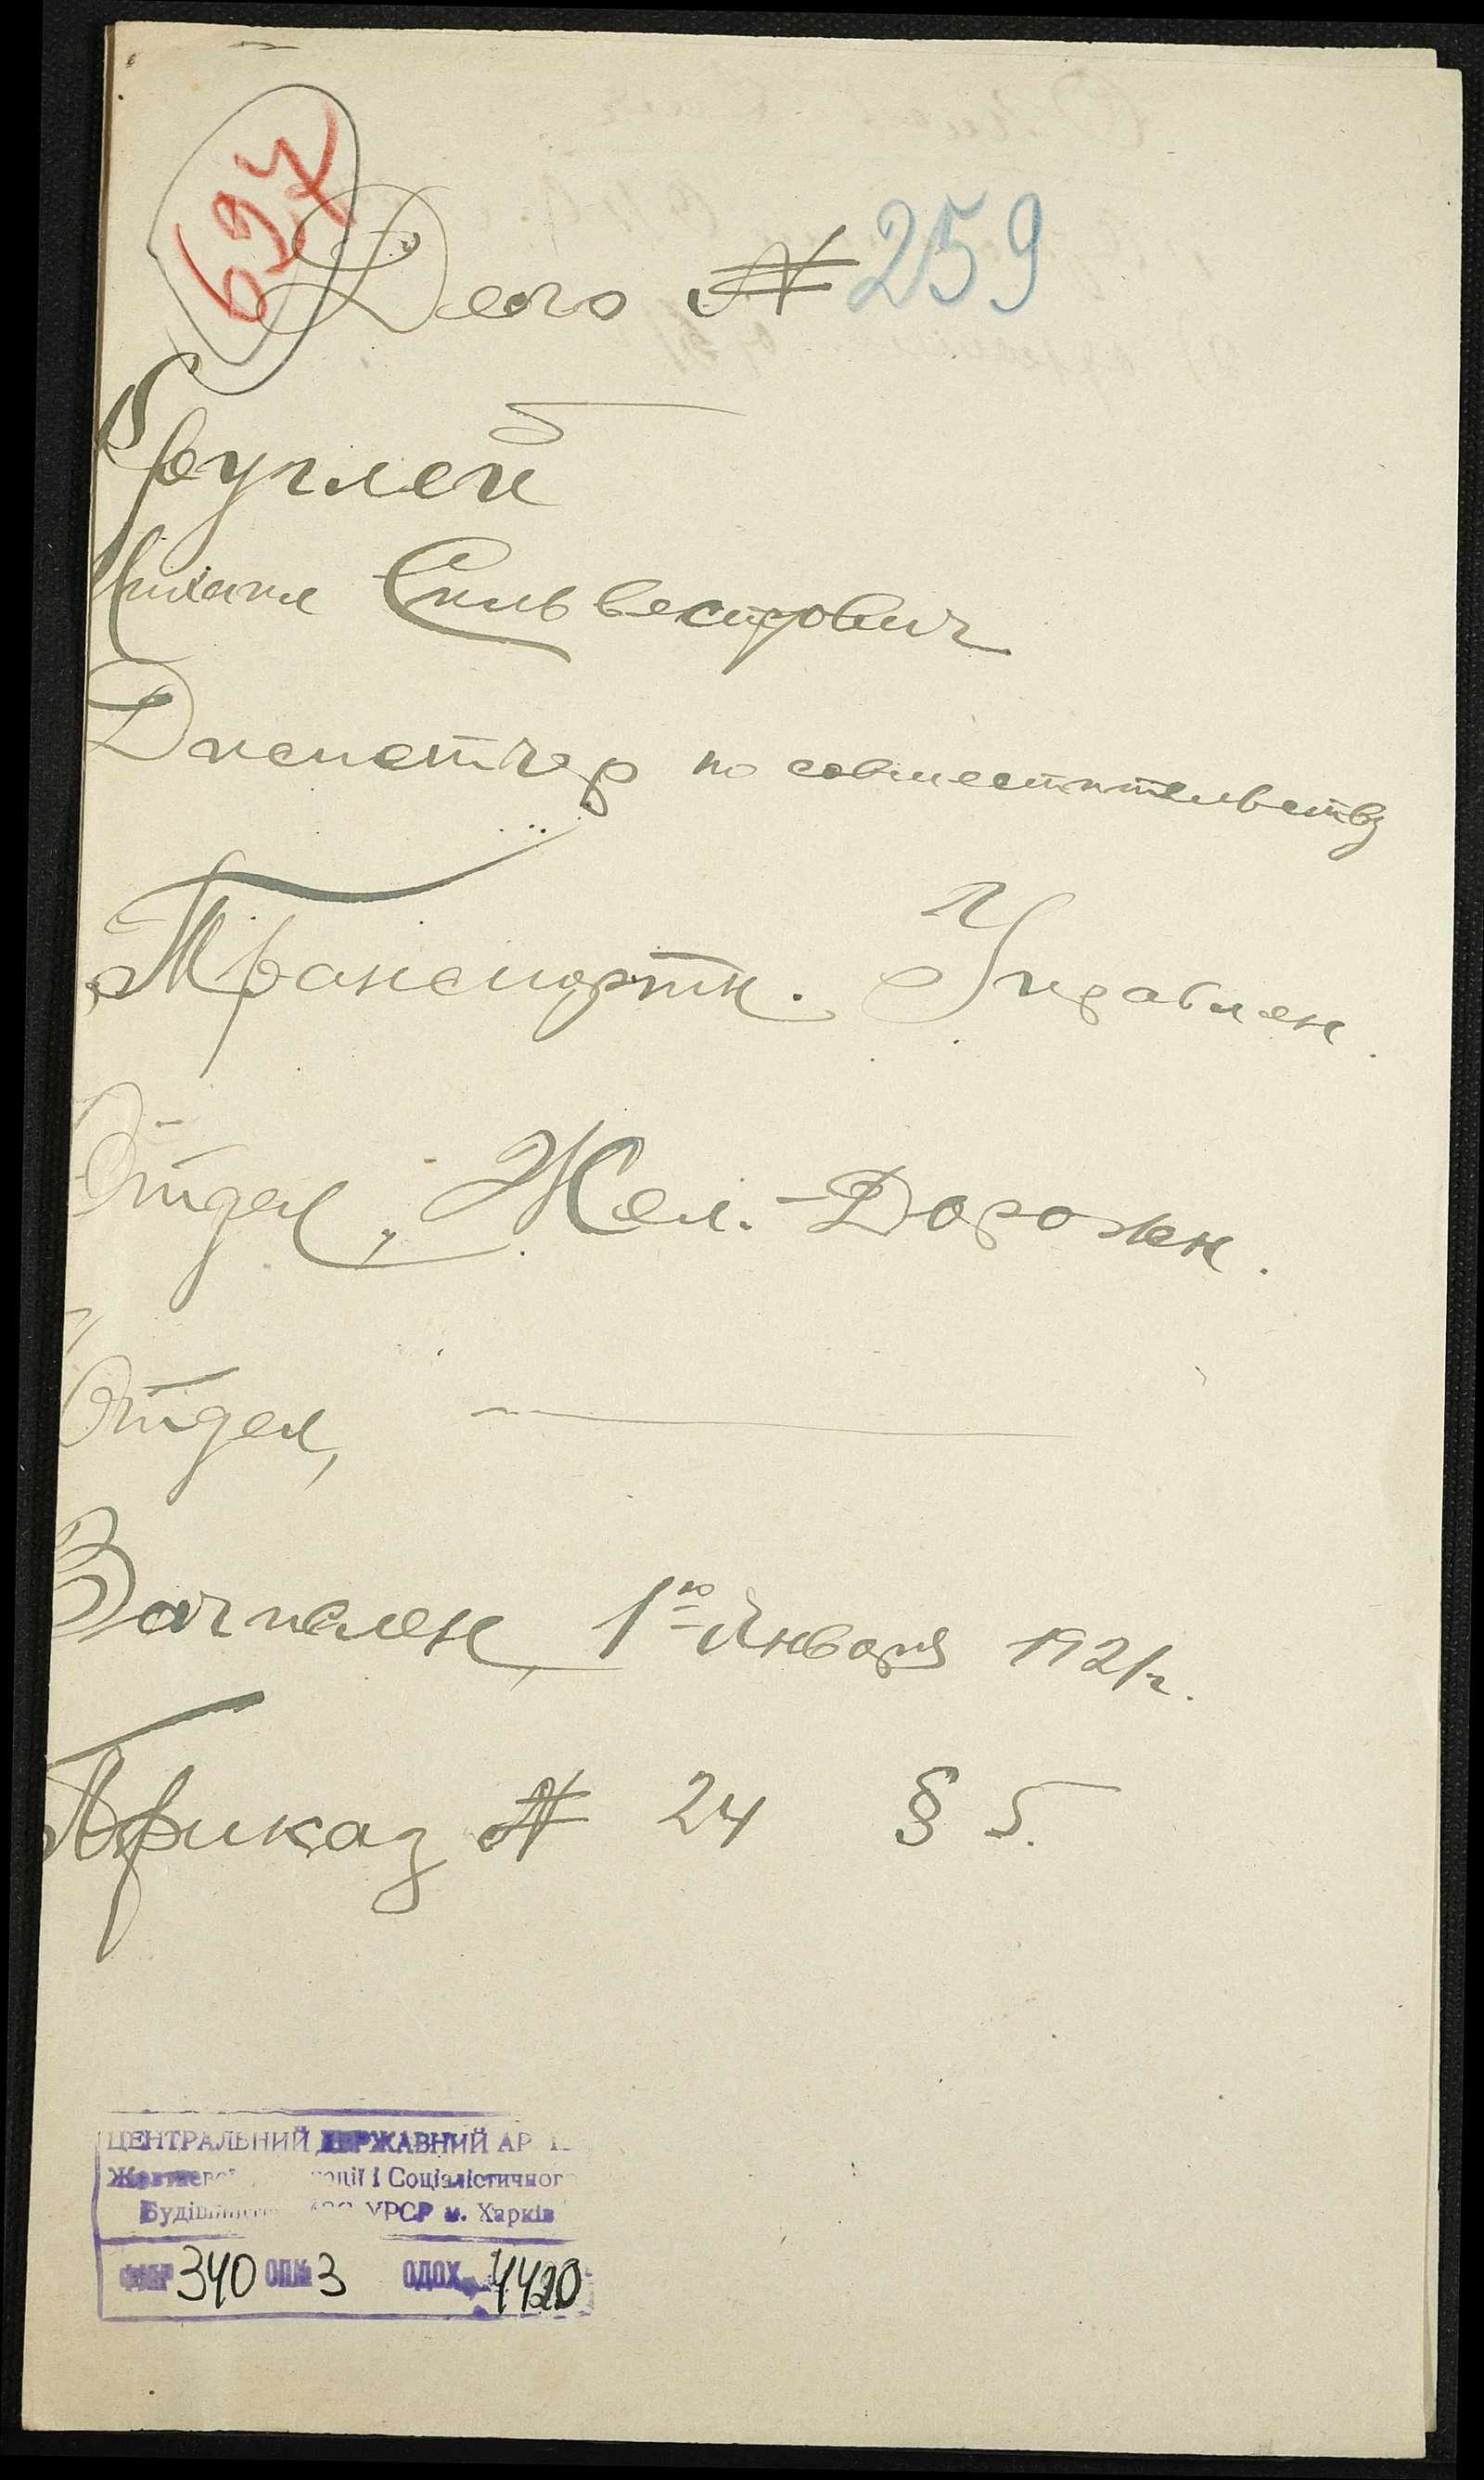 697
Дело № 259
Михаил Сильвестрович
Диспетчер по совместительству
Транспортн. Управлен.
Отдел, Жел.-Дорожн.
Отдел, —
Зачислен 1го Января 1921г.
Приказ № 24 § 5.
ЦЕНТРАЛЬНИЙ ДЕРЖАВНИЙ АР
і Соціалістичного
УРСР м. Харків
340 3 ОДОХ